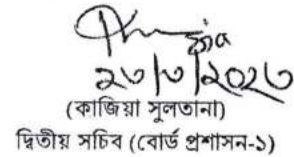 ২৩/৩/২০২৩
(কাজিয়া সুলতানা)
দ্বিতীয় সচিব ((বোর্ড প্রশাসন-১)